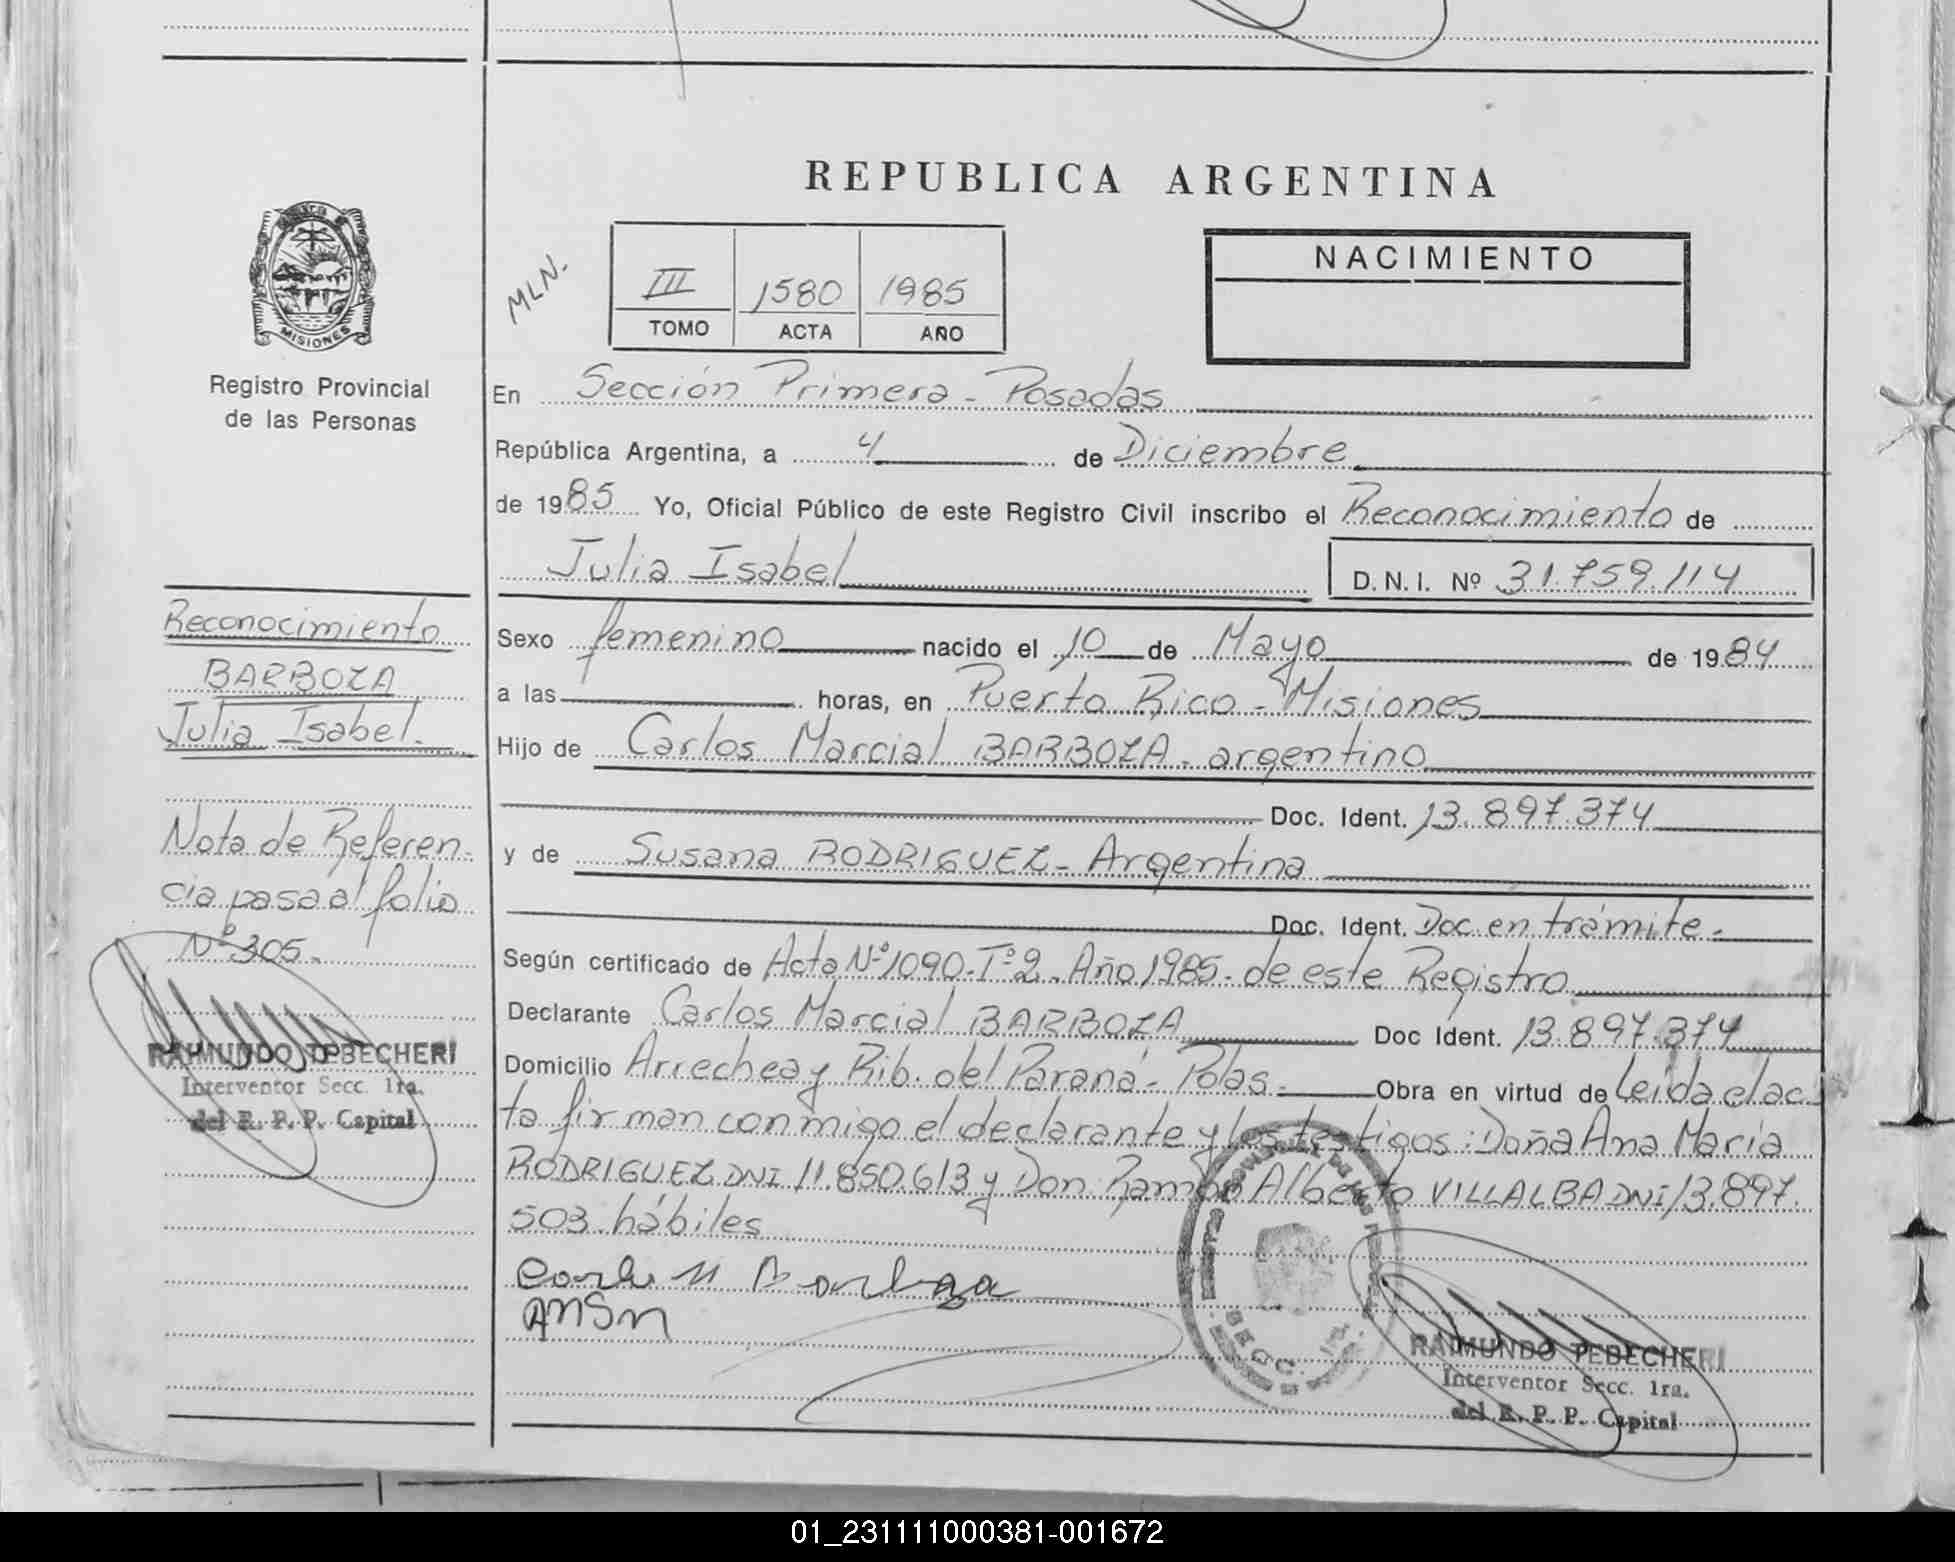 REPUBLICA ARGENTINA
MISIONES
Registro Provincial
de las Personas
MLN.
III 1580 1985
TOMO ACTA AÑO
NACIMIENTO
En Sección Primera - Posadas
República Argentina, a 4 de Diciembre
de 1985 Yo, Oficial Público de este Registro Civil inscribo el Reconocimiento de
Julia Isabel D.N.I. Nº 31.759.114
Sexo femenino nacido el 10 de Mayo de 1984
a las horas, en Puerto Rico - Misiones
Hijo de Carlos Marcial BARBOZA - argentino
Doc. Ident. 13.897.374
y de Susana RODRIGUEZ - Argentina
Doc. Ident. Doc en trámite.
Según certificado de Acta Nº 1090. Tº 2. Año 1985. de este Registro
Declarante Carlos Marcial BARBOZA Doc Ident. 13.897.374
Domicilio Arrechea y Rib. del Paraná - Pdas. Obra en virtud de leída el ac
ta firman conmigo el declarante y los testigos: Doña Ana María
RODRIGUEZ DNI 11.850.613 y Don Ramón Alberto VILLALBA DNI 13.897.
503 hábiles
RAIMUNDO TEBECHERI
Interventor Secc. 1ra.
del R. P. P. Capital
Reconocimiento
BARBOZA
Julia Isabel.
Nota de Referen-
cia pasa al folio
Nº 305.
RAIMUNDO TEBECHERI
Interventor Secc. 1ra.
del R. P. P. Capital
01_231111000381-001672